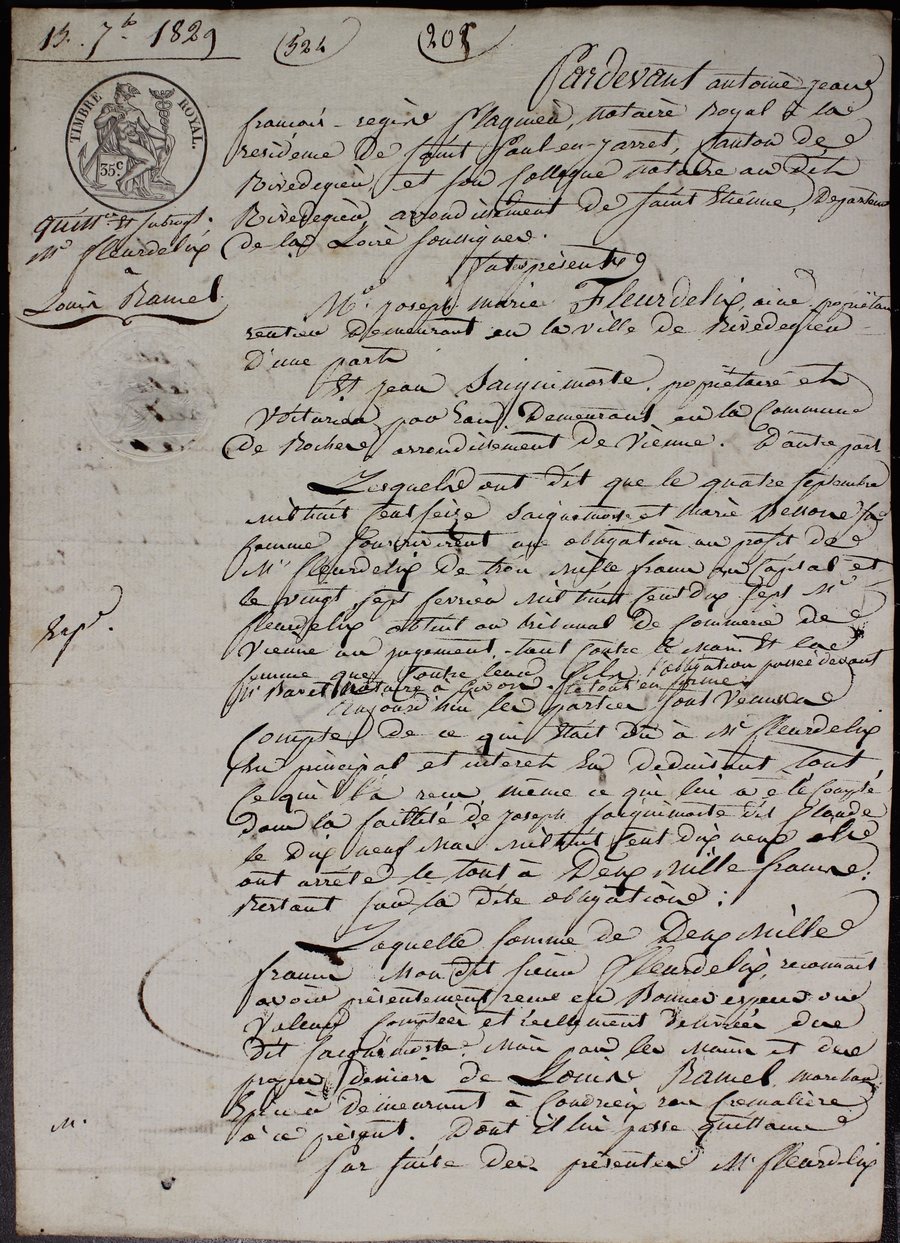 13. 7bre 1829
(524)
(201)
TIMBRE ROYAL.
35 c
Quittce et subrogt.
Mr fleurdelix
a
Louis Ramel
Exp.
M.
Pardevant antoine jean
francois-regis flagmeà, notaire Royal à la
residence de saint Paul-en-jarret, Canton de
Rivedegier, et son Collegue notaire au dit
Rivedegier, arrondissement de saint Etienne, Departemt
de la Loire soussignes.
Sont présents
Mr. joseph marie Fleurdelix ainé, propriétaire
rentier Demeurant en la ville de Rivedegier
D'une part
Et jean Saiquimorte, propriétaire et
Voiturier par Eau, Demeurant en la Commune
de arrondissement de Vienne. D'autre part
Lesquels ont dit que le quatre septembre
mil huit cent seize Saiquimorte et marie sa
femme souscrivirent une obligation au profit de
Mr fleurdelix de trois mille francs en capital et
le vingt sept fevrier mil huit cent dix sept Mr
fleurdelix obtint au tribunal de Commerce de
Vienne un jugement tant contre le Mari Et la
femme que contre leur fils, l'obligation passée devant
Me notaire à Givors. le tout en forme
Aujourd'hui les parties sont Venues a
Compte de ce qui était dû à Mr fleurdelix
En principal et interets En deduisant tout
Ce qu'il a reçu même ce qui lui a été Compté
dans la faillite de joseph Saiquimorte dit
le Dix neuf Mai Mil huit cent dix neuf elles
ont arrêté le tout à Deux Mille francs,
Restant sur la dite obligatione ;
Laquelle somme de Deux Mille
francs Mon dit sieur fleurdelix, reconnait
avoir présentement reçue en Bonnes especes ou
Valeurs Comptées et réellement Delivrées du
dit saiquimorte, Mais par les Mains et des
propres deniers de Louis Ramel, marchand
Epicier demeurant à Condrieu
à ce présent. Dont il lui passe quittance
Par suite des présentes Mr fleurdelix